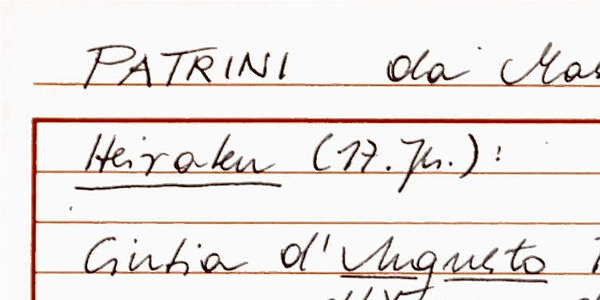 PATRINI da
Heiraten (17. Jh.):
Giulia d'Augusto